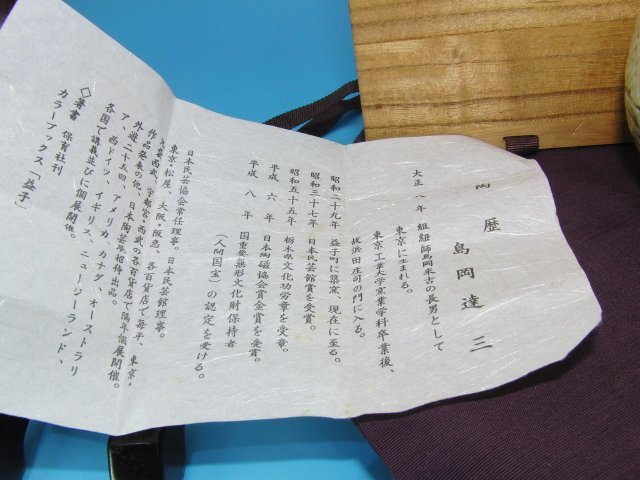 陶歴
島岡達三
大正八年 組紐師島岡米吉の長男として
東京に生まれる。
東京工業大学窯業学科卒業後、
故浜田庄司の門に入る。
昭和二十九年 益子町に築窯、現在に至る。
昭和三十七年 日本民芸館賞を受賞。
昭和五十五年 栃木県文化功労章を受章。
平成六年 日本陶磁協会賞金賞を受賞。
平成八年 国重要無形文化財保持者
(人間国宝)の認定を受ける。
日本民芸協会常任理事。日本民芸館理事。
東京・松屋、大阪・阪急、各百貨店で毎年、東京・
西武、宇都宮・西武、各百貨店で隔年個展開催。
作品発表の他、日本陶芸展招待出品。
外遊二十五回、アメリカ、カナダ、オーストラリ
ア、西ドイツ、イギリス、ニュージーランド、
各国で講義並びに個展開催。
◇著書 保育社刊
カラーブックス「益子」